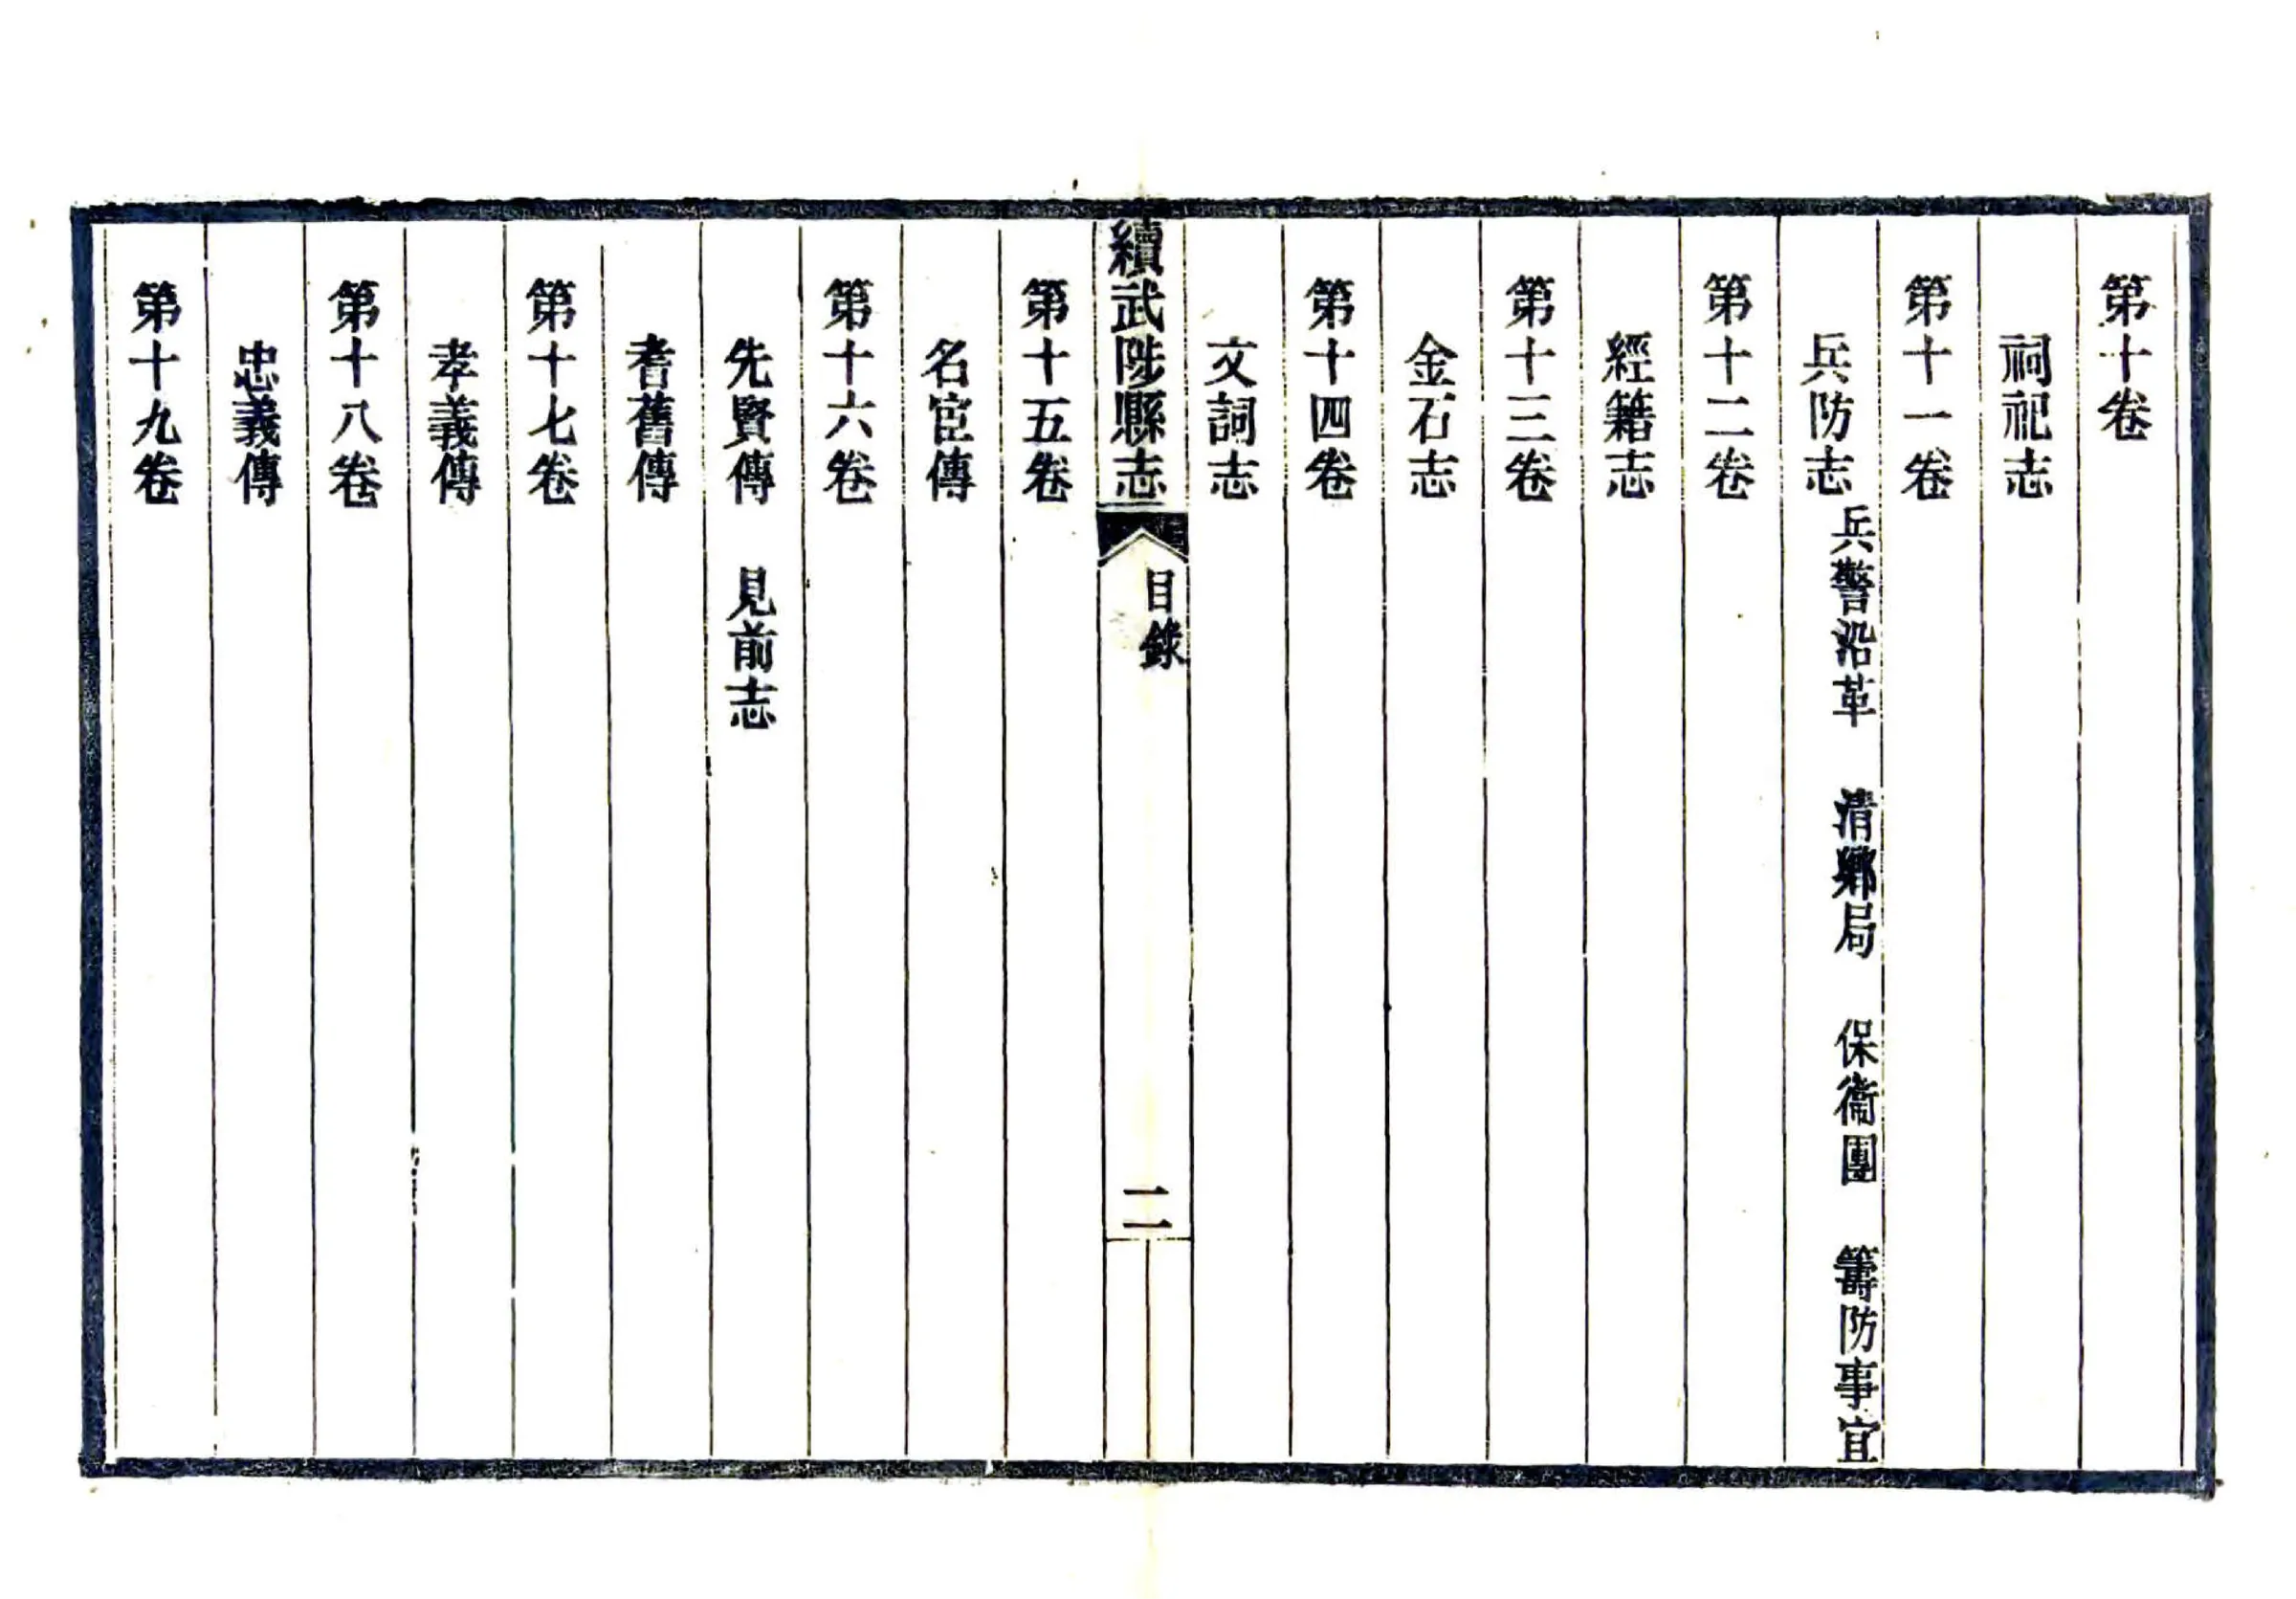 第十卷
祠祀志
第十一卷
兵防志 兵警沿革 清鄉局 保衞團 籌防事宜
第十二卷
經籍志
第十三卷
金石志
第十四卷
文詞志
續武陟縣志 目錄 二
第十五卷
名宦傳
第十六卷
先賢傳 見前志
耆舊傳
第十七卷
孝義傳
第十八卷
忠義傳
第十九卷